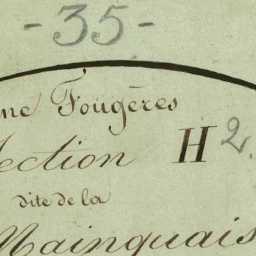 - 35 -
ne Fougères
ection H 2.
dite de la
Mainguais